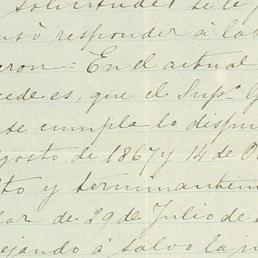 solicitudes se le
responder á la
eron = En el actual
cede es, que el Supo. G
se cumpla lo dispu
gosto de 1867 y 14 de O
to y terminantem
lar de 29 de Julio de
ejando á salvo la